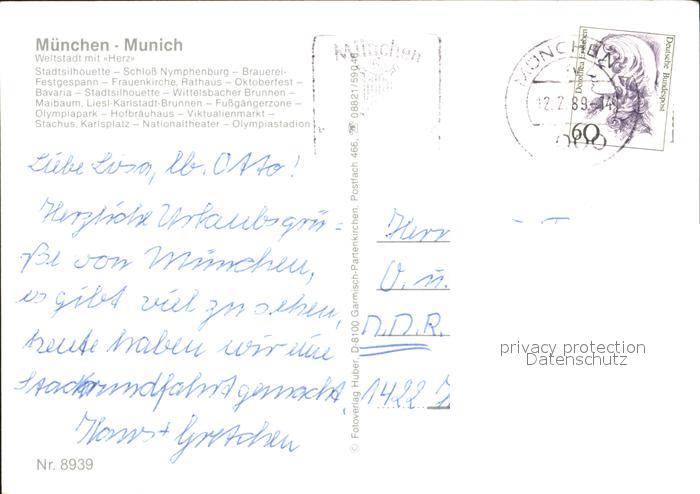 München - Munich
Weltstadt mit «Herz»
Stadtsilhouette – Schloß Nymphenburg – Brauerei-
Festgespann – Frauenkirche, Rathaus – Oktoberfest –
Bavaria – Stadtsilhouette – Wittelsbacher Brunnen –
Maibaum, Liesl-Karlstadt-Brunnen – Fußgängerzone –
Olympiapark – Hofbräuhaus – Viktualienmarkt –
Stachus, Karlsplatz – Nationaltheater – Olympiastadion
München
MÜNCHEN
12.2.89-14
Deutsche Bundespost
Dorothea Erxleben
60
Liebe Lisa, lb. Otto!
Herzliche Urlaubsgrü=
ße von München,
es gibt viel zu sehen,
heute haben wir eine
Stadtrundfahrt gemacht.
Hans + Gretchen
Nr. 8939
© Fotoverlag Huber, D-8100 Garmisch-Partenkirchen, Postfach 466, ☎ 08821/59046
Herr
O. u.
D.D.R.
1422
privacy protection
Datenschutz